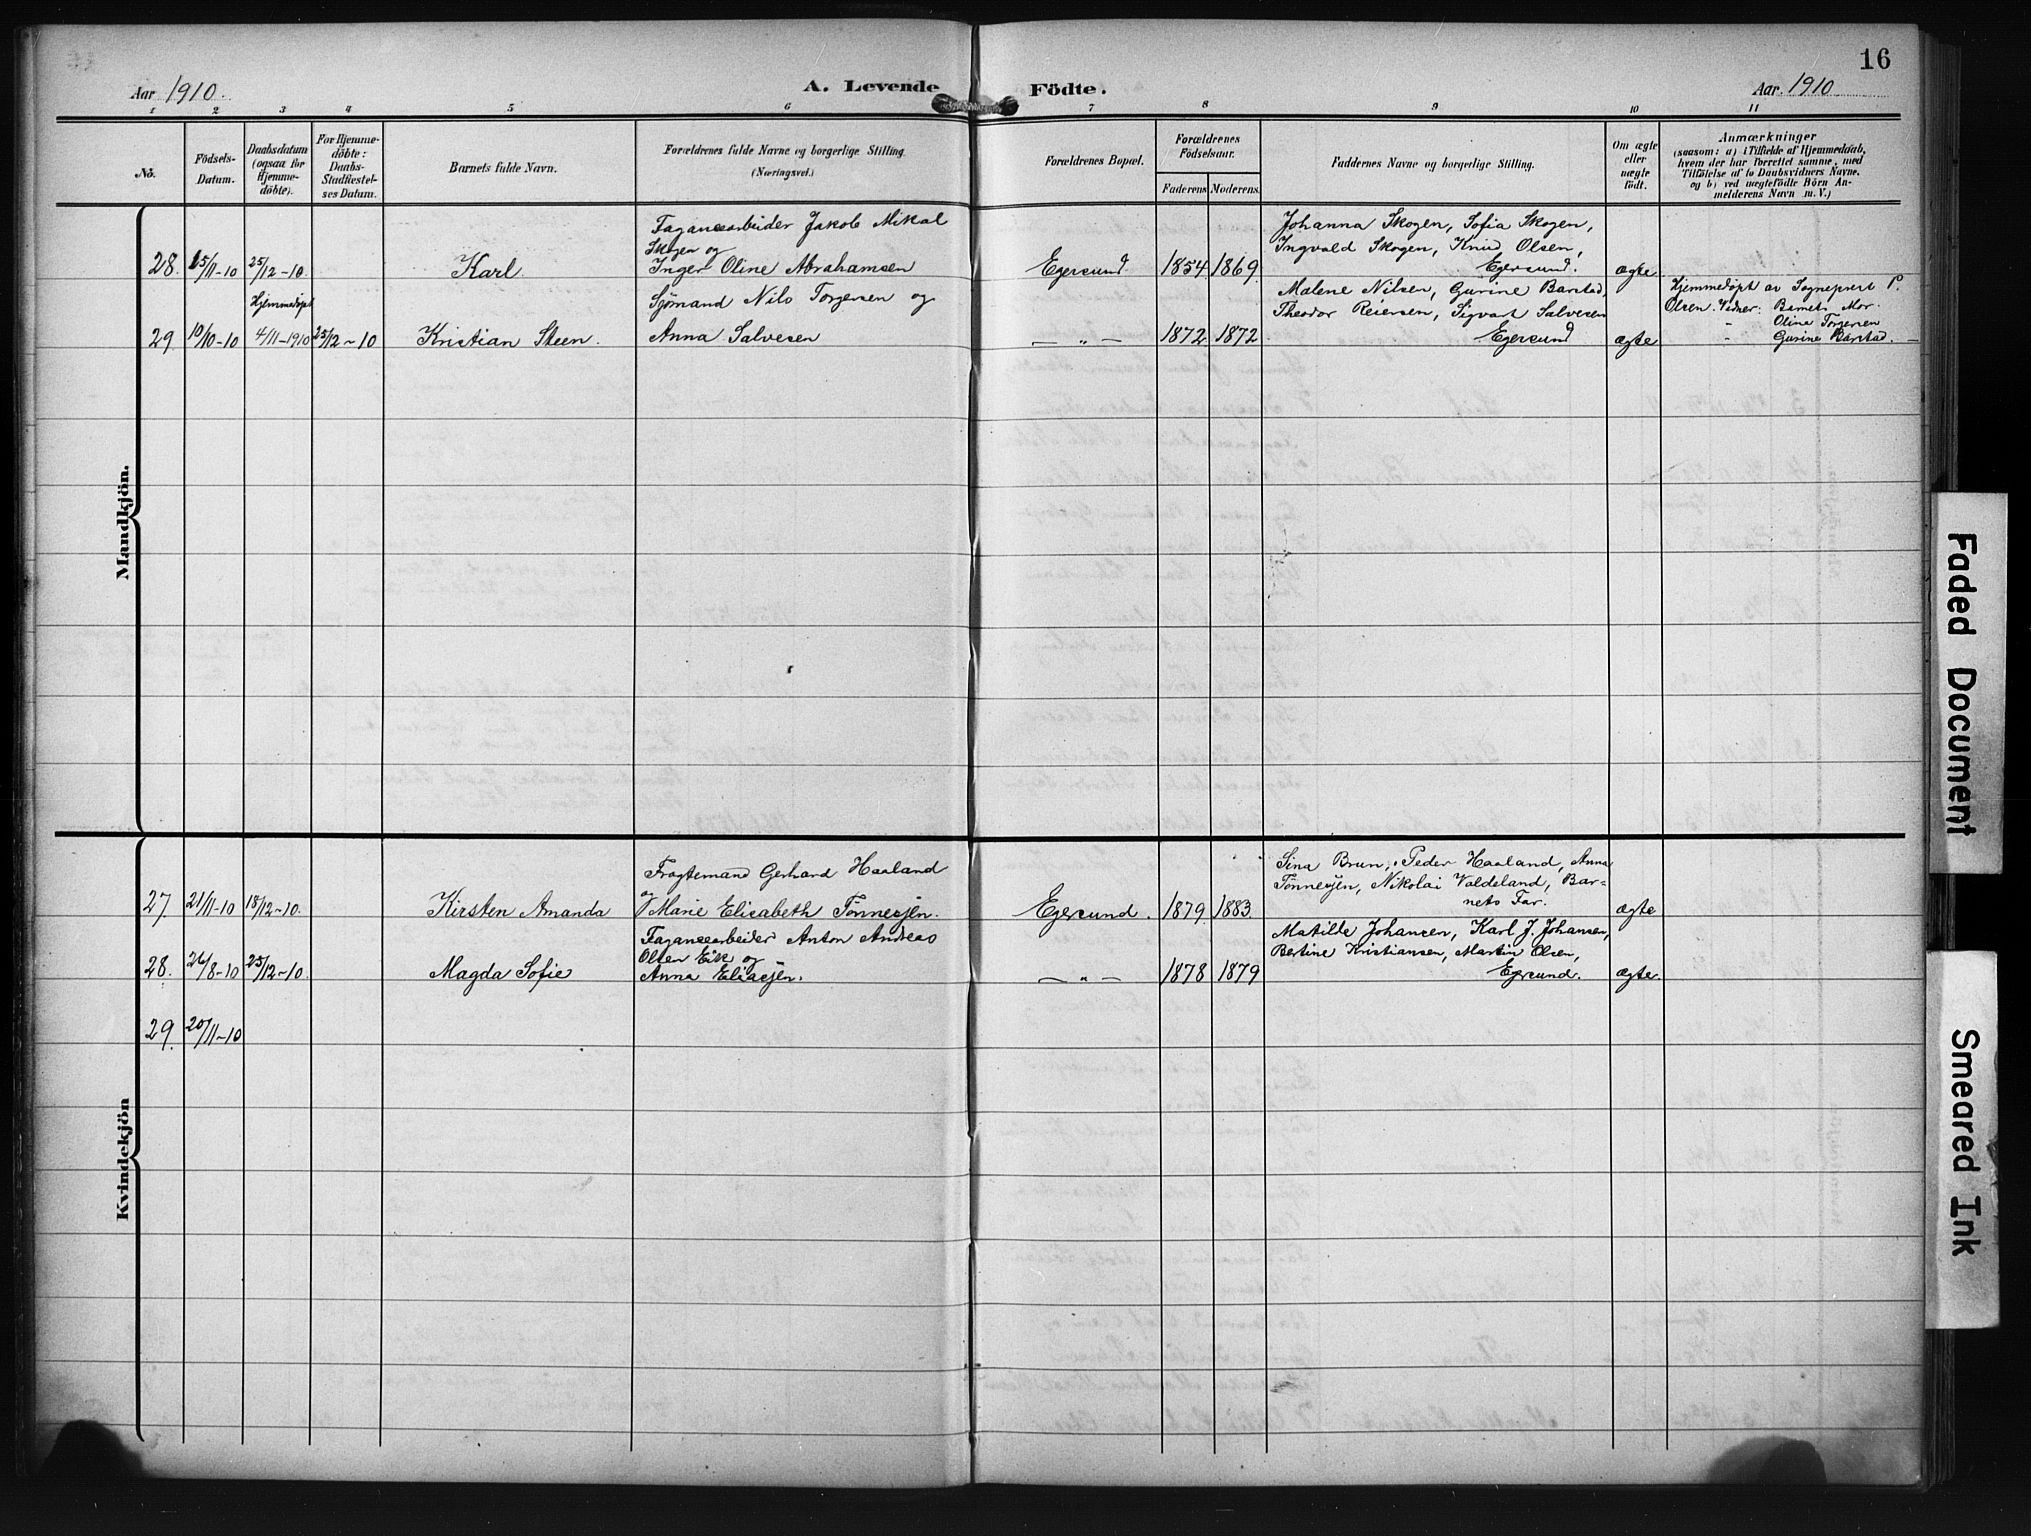 16
Aar 1910.
A. Levende Födte.
Aar. 1910
1 2 3 4 5 6 7 8 9 10 11
No.
Födsels-
Datum.
Daabsdatum
(ogsaa for
Hjemme-
döbte).
For Hjemme-
döbte:
Daabs-
Stadfæstel-
ses Datum.
Barnets fulde Navn.
Forældrenes fulde Navne og borgerlige Stilling
(Næringsvei.)
Forældrenes Bopæl.
Forældrenes
Födselsaar.
Faderens Moderens.
Faddernes Navne og borgerlige Stilling.
Om ægte
eller
uægte
födt.
Anmærkninger
(saasom: a) i Tilfælde af Hjemmedaab,
hvem der har forrettet samme, med
Tilföielse af to Daabsvidners Navne,
og b) ved uægtefödte Börn An-
melderens Navn m. V.)
Mandkjön.
Fayancearbeider Jakob Mikal
Skogen og
Inger Oline Abrahamsen
28. 15/11-10 25/12-10. Karl. Egersund 1854 1869.
Johanna Skogen, Sofia Skogen,
Ingvald Skogen, Knud Olsen,
Egersund. ægte
Hjemmedøpt
Sjømand Nils Torgersen og
29. 10/10-10 4/11-1910 25/12-10 Kristian Steen. Anna Salvesen — " — 1872 1872
Malene Nilsen, Gurine Barstad,
Theodor Reiersen, Sigvart Salvesen
Egersund ægte
Hjemmedøpt av Sogneprest P.
Olsen. Vidner: Barnets Mor.
" Olina Torgersen
- Gurine Barstad. —
Kvindekjön
Fragtemand Gerhard Haaland
og
27. 21/11-10 18/12-10. Kirsten Amanda Marie Elisabeth Tönnesjen. Egersund. 1879 1883.
Sina Brun, Peder Haaland, Anna
Tönnesjen, Nikolai Valdeland, Bar=
nets Far. ægte
Fayancearbeider Anton Andreas
Olsen Eik og
28. 26/8-10 25/12-10. Magda Sofie Anna Eliasjen. — " — 1878 1879
Matilde Johansen, Karl J. Johansen,
Bertine Kristiansen, Martin Olsen,
Egersund. ægte.
29. 20/11-10
Faded Document
Smeared Ink